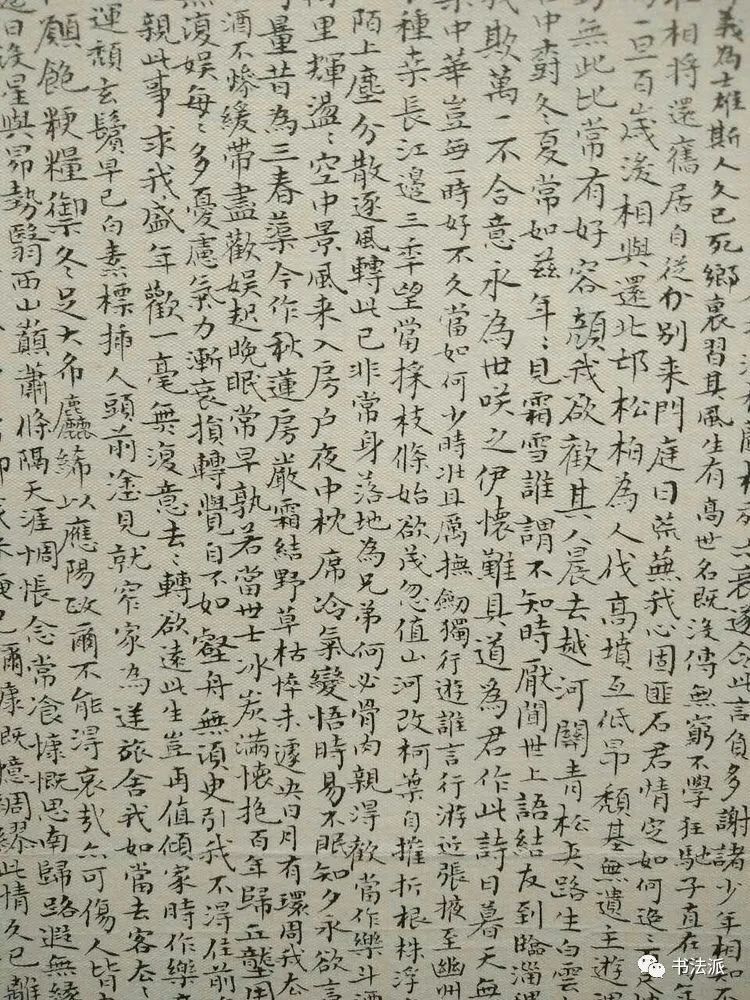 衰遂令此言負多謝諸少年相知不
義為士雄斯人久已死鄉裏習其風生有高世名既沒傳無窮不學狂馳子直在
相將還舊居自從分別来門庭日荒蕪我心固匪石君情定如何
一旦百歲後相與還北邙松柏為人伐高墳互低昂頹基無遺主遊
無此比常有好容顏我欲觀其人晨去越河關青松夾路生白雲
中斟冬夏常如茲年々見霜雪誰謂不知時厭聞世上語結友到臨淄
我欺萬一不合意永為世咲之伊懷難具道為君作此詩日暮天無
中華豈每一時好不久當如何少時壯且厲撫劒獨行遊誰言行游近張掖至幽州
種桑長江邊三年望當採枝條始欲茂忽值山河改柯葉自摧折根株浮
陌上塵分散逐風轉此已非常身落地為兄弟何必骨肉親得歡當作樂斗酒
里輝盪々空中景風来入房戶夜中枕席冷氣變悟時易不眠知夕永欲言
量昔為三春蕖今作秋蓮房嚴霜結野草枯悴未遽央日月有環周我去
酒不慘緩帶盡歡娛起晚眠常早孰若當世士冰炭滿懷抱百年歸丘壟用
無復娛每々多憂慮氣力漸衰損轉覺自不如壑舟無須臾引我不得住前
親此事求我盛年歡一毫無復意去々轉欲遠此生豈再值傾家時作樂
運頹玄鬢早已白素標插人頭前塗見就窄家為逆旅舍我如當去客去々
願飽粳糧御冬足大布麤絺以應陽政爾不能得哀哉亦可傷人皆
日沒星與昴勢翳西山巔蕭條隔天涯惆悵念常飡慷慨思南歸路遐無緣
爾慷既憶綢繆此情久已離
书法派